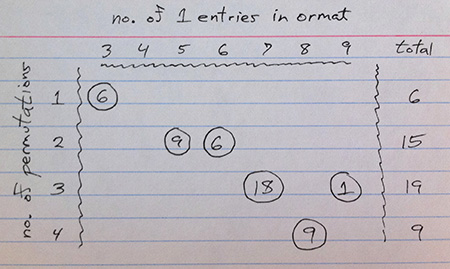 no. of 1 entries in ormat
3 4 5 6 7 8 9 total
no. of permutations
1 6 6
2 9 6 15
3 18 1 19
4 9 9